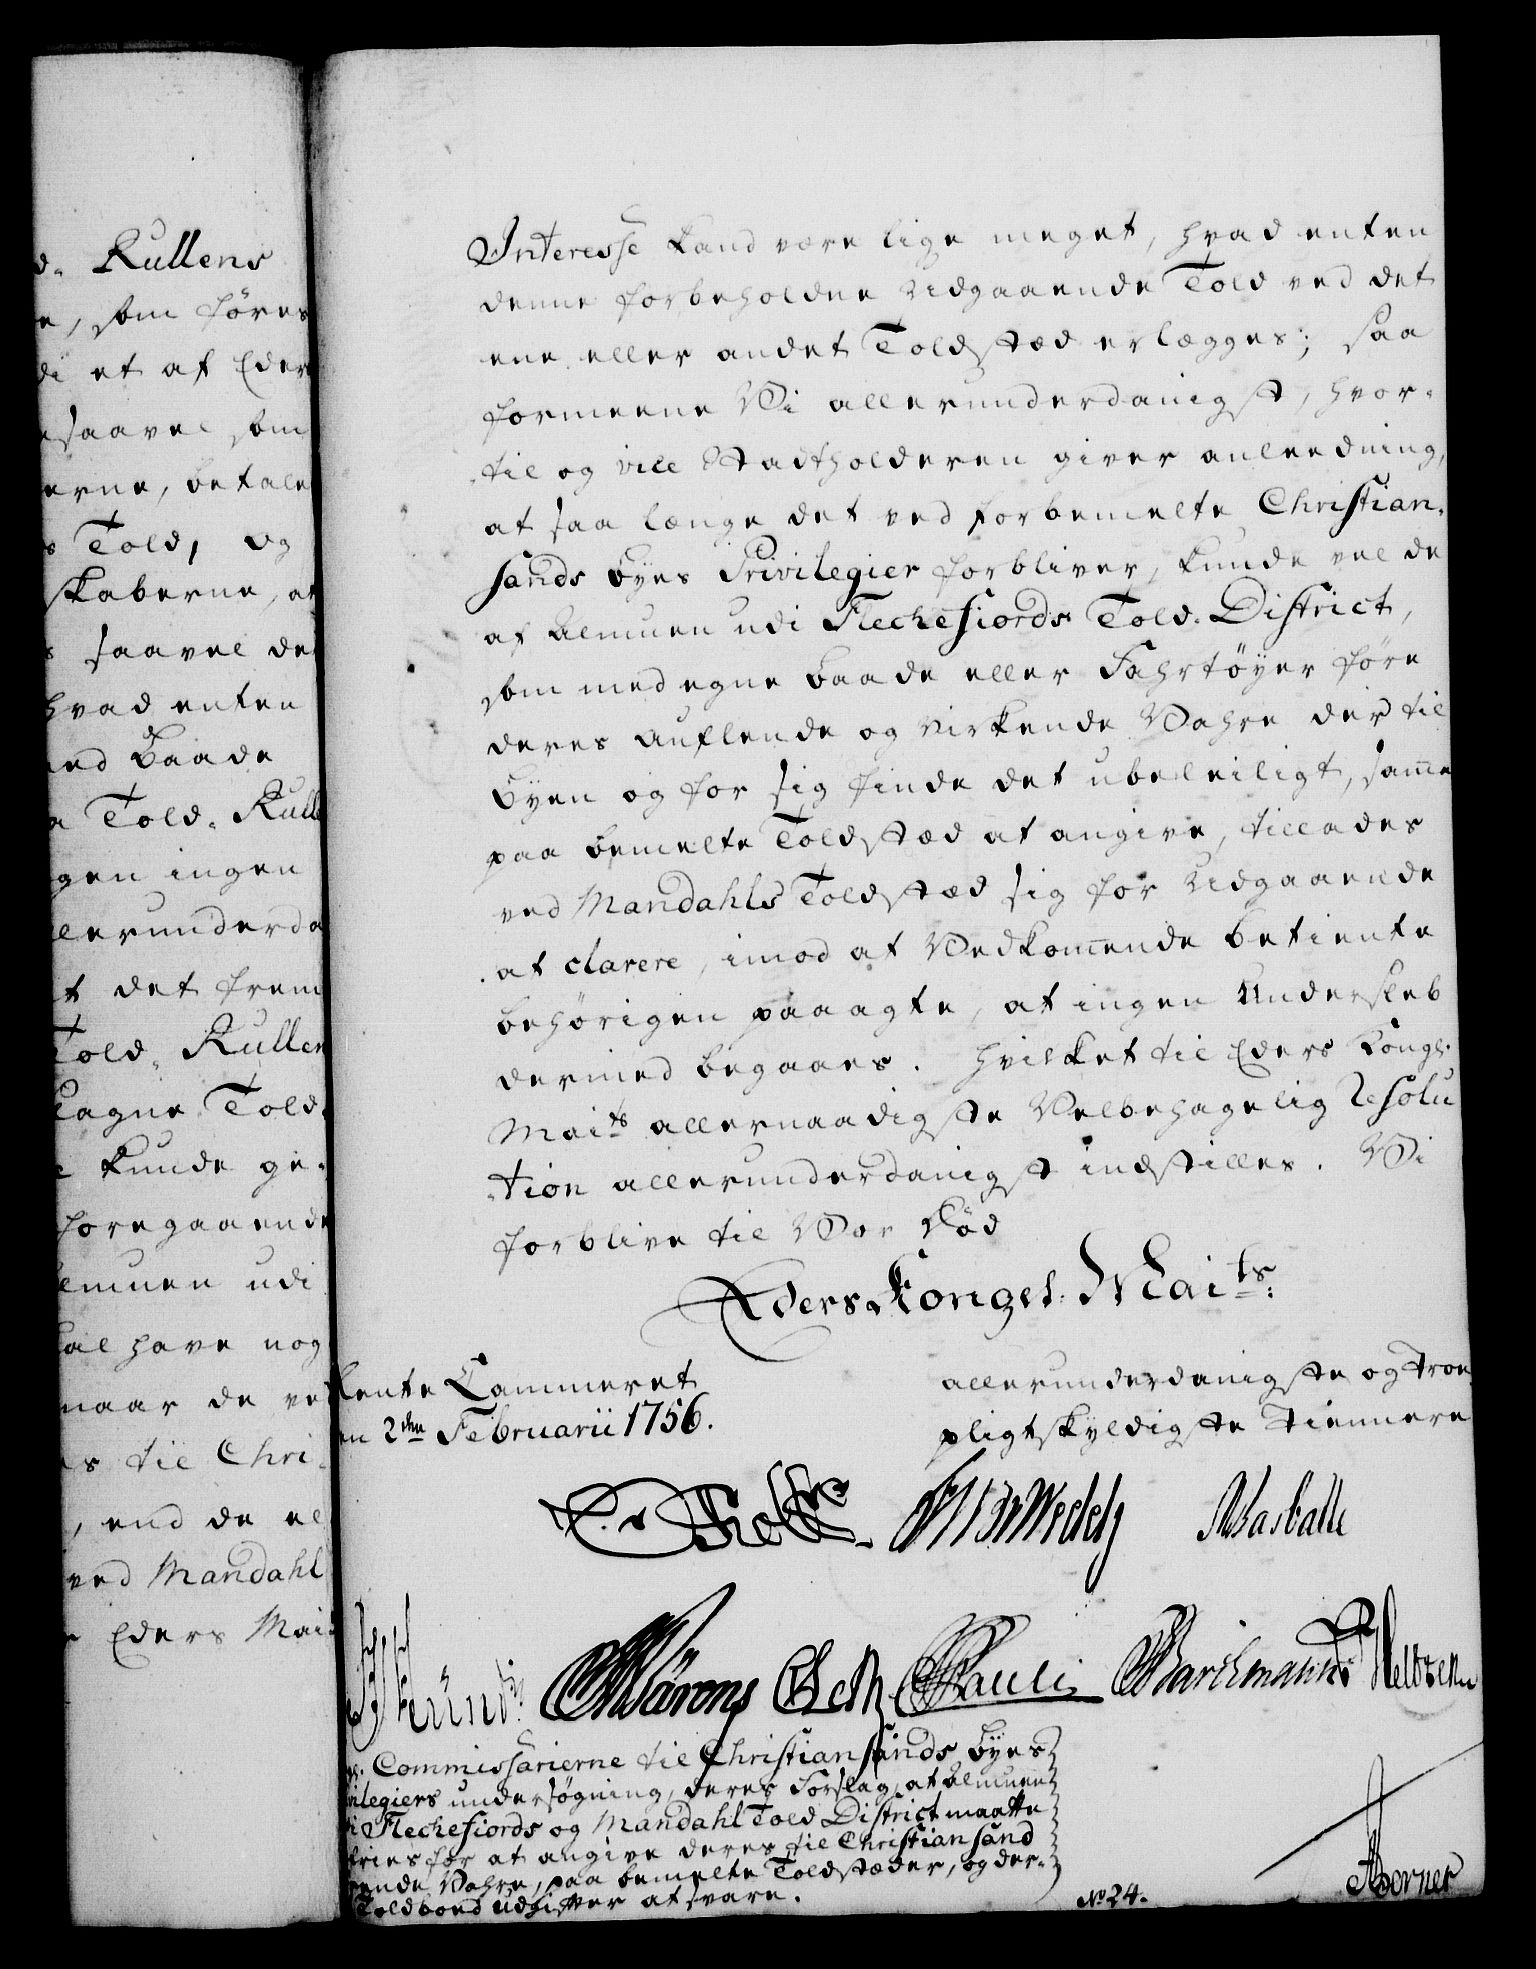 d. Rullens
e, som föres
di et af Eders
saavel som
erne, betale
s Told, og
skaberne, at
s saavel de
hvad enten
med Baade
a Told-Rull
gen ingen
llerunderda
t det frem
Told-Rullen
Told
kunde ge-
foregaaende
emuen udi
al have nog
naar de ve
es til Chri-
, end de el
ved Mandahl
Eders Mai
Interesse kand være lige meget, hvad enten
denne forbeholdne Udgaaende Told ved det
ene eller andet Toldstæd erlægges; saa
formeene Vi allerunderdanigst, hvor-
til og vice Stadtholderen giver anleedning,
at saa længe det ved forbemelte Christian-
sands Byes Privilegier forbliver, kunde vel de
af Almuen udi Flechefiords Told-District,
som med egne Baade eller Fahrtöyer före
deres auflende og virkende Vahre der til
Byen og for sig finde det ubeleiligt, samme
paa bemelte Toldstæd at angive, tillades
ved Mandahls Toldstæd sig for Udgaaende
at clarere, imod at Vedkommende betiente
behörigen paaagte, at ingen Underslæb
dermed begaaes. Hvilket til Eders Kongl:
Maits allernaadigste Velbehagelig Resolu
-tion allerunderdanigst indstilles. Vi
forblive til Vor Död
Eders Kongel. Maits:
Rente Cammeret
en 2den Februarii 1756.
allerunderdanigste og Troe
pligtskyldigste Tiennere
Holck Wedel Masballe
Pauli Barchmann
Commissarierne til Christiansands Byes
vilegiers undersögning, deres Forslag, at Almuen
i Flechefiords og Mandahl Told District maatte
fries for at angive deres til Christiansand
rende Vahre, paa bemelte Toldstæder, og der-
Toldboed Udgifter at svare.
No 24.
Borner